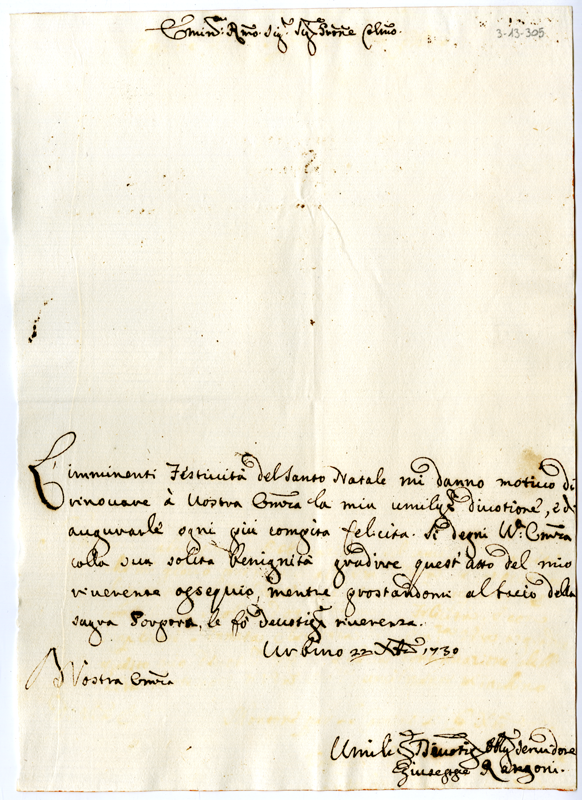 Emin: Rmo. Sig: Sig: Prone Colmo.
3-13-305
L'imminenti Festività del Santo Natale mi danno motivo di
rinovare à Vostra Emza la mia umil divotione, e di
augurarle ogni più compita felicita. Si degni V. Emza
colla sua solita benignità gradire quest'atto del mio
riverente ossequio, mentre prostandomi al bacio della
sagra Porpora, le fò Devotis riverenza.
Urbino 22 Xbre 1730
Vostra Emza
Umilis Divotis Obl Servidore
Giuseppe Rangoni.